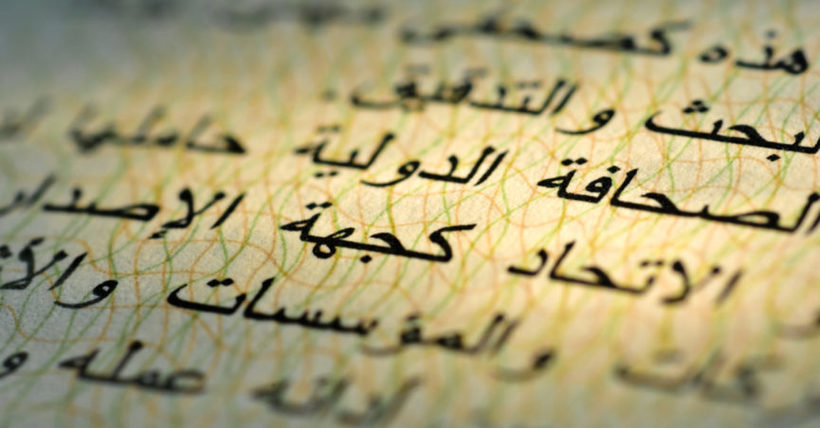 هذه كصحفي
لبحث والتدقيق.
الصحافة الدولية حاملها
الاتحاد كجهة الإصدار
والمؤسسات
أدائه عمله و